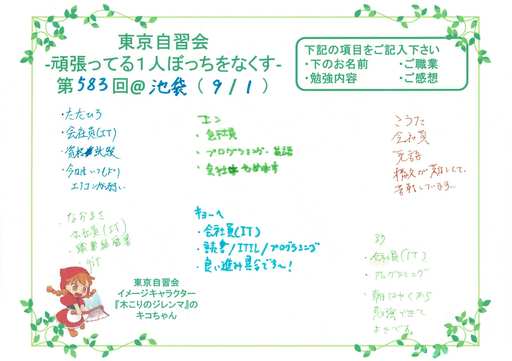 東京自習会
-頑張ってる1人ぼっちをなくす-
第583回@池袋(9/1)
下記の項目をご記入下さい
・下のお名前 ・ご職業
・勉強内容 ・ご感想
・ただひろ
・会社員(IT)
・試験
・今日は
エアコンが
・会社員
・プログラミング・英語
・会社 やめます
こうた
会社員
英語
なおまさ
会社員(IT)
キョーへ
・会社員(IT)
・読書/ITIL/プログラミング
・良い進み具合です〜!
・会社員(IT)
・プログラミング
・朝はやくから
勉強できて
よきでる
東京自習会
イメージキャラクター
『木こりのジレンマ』の
キコちゃん